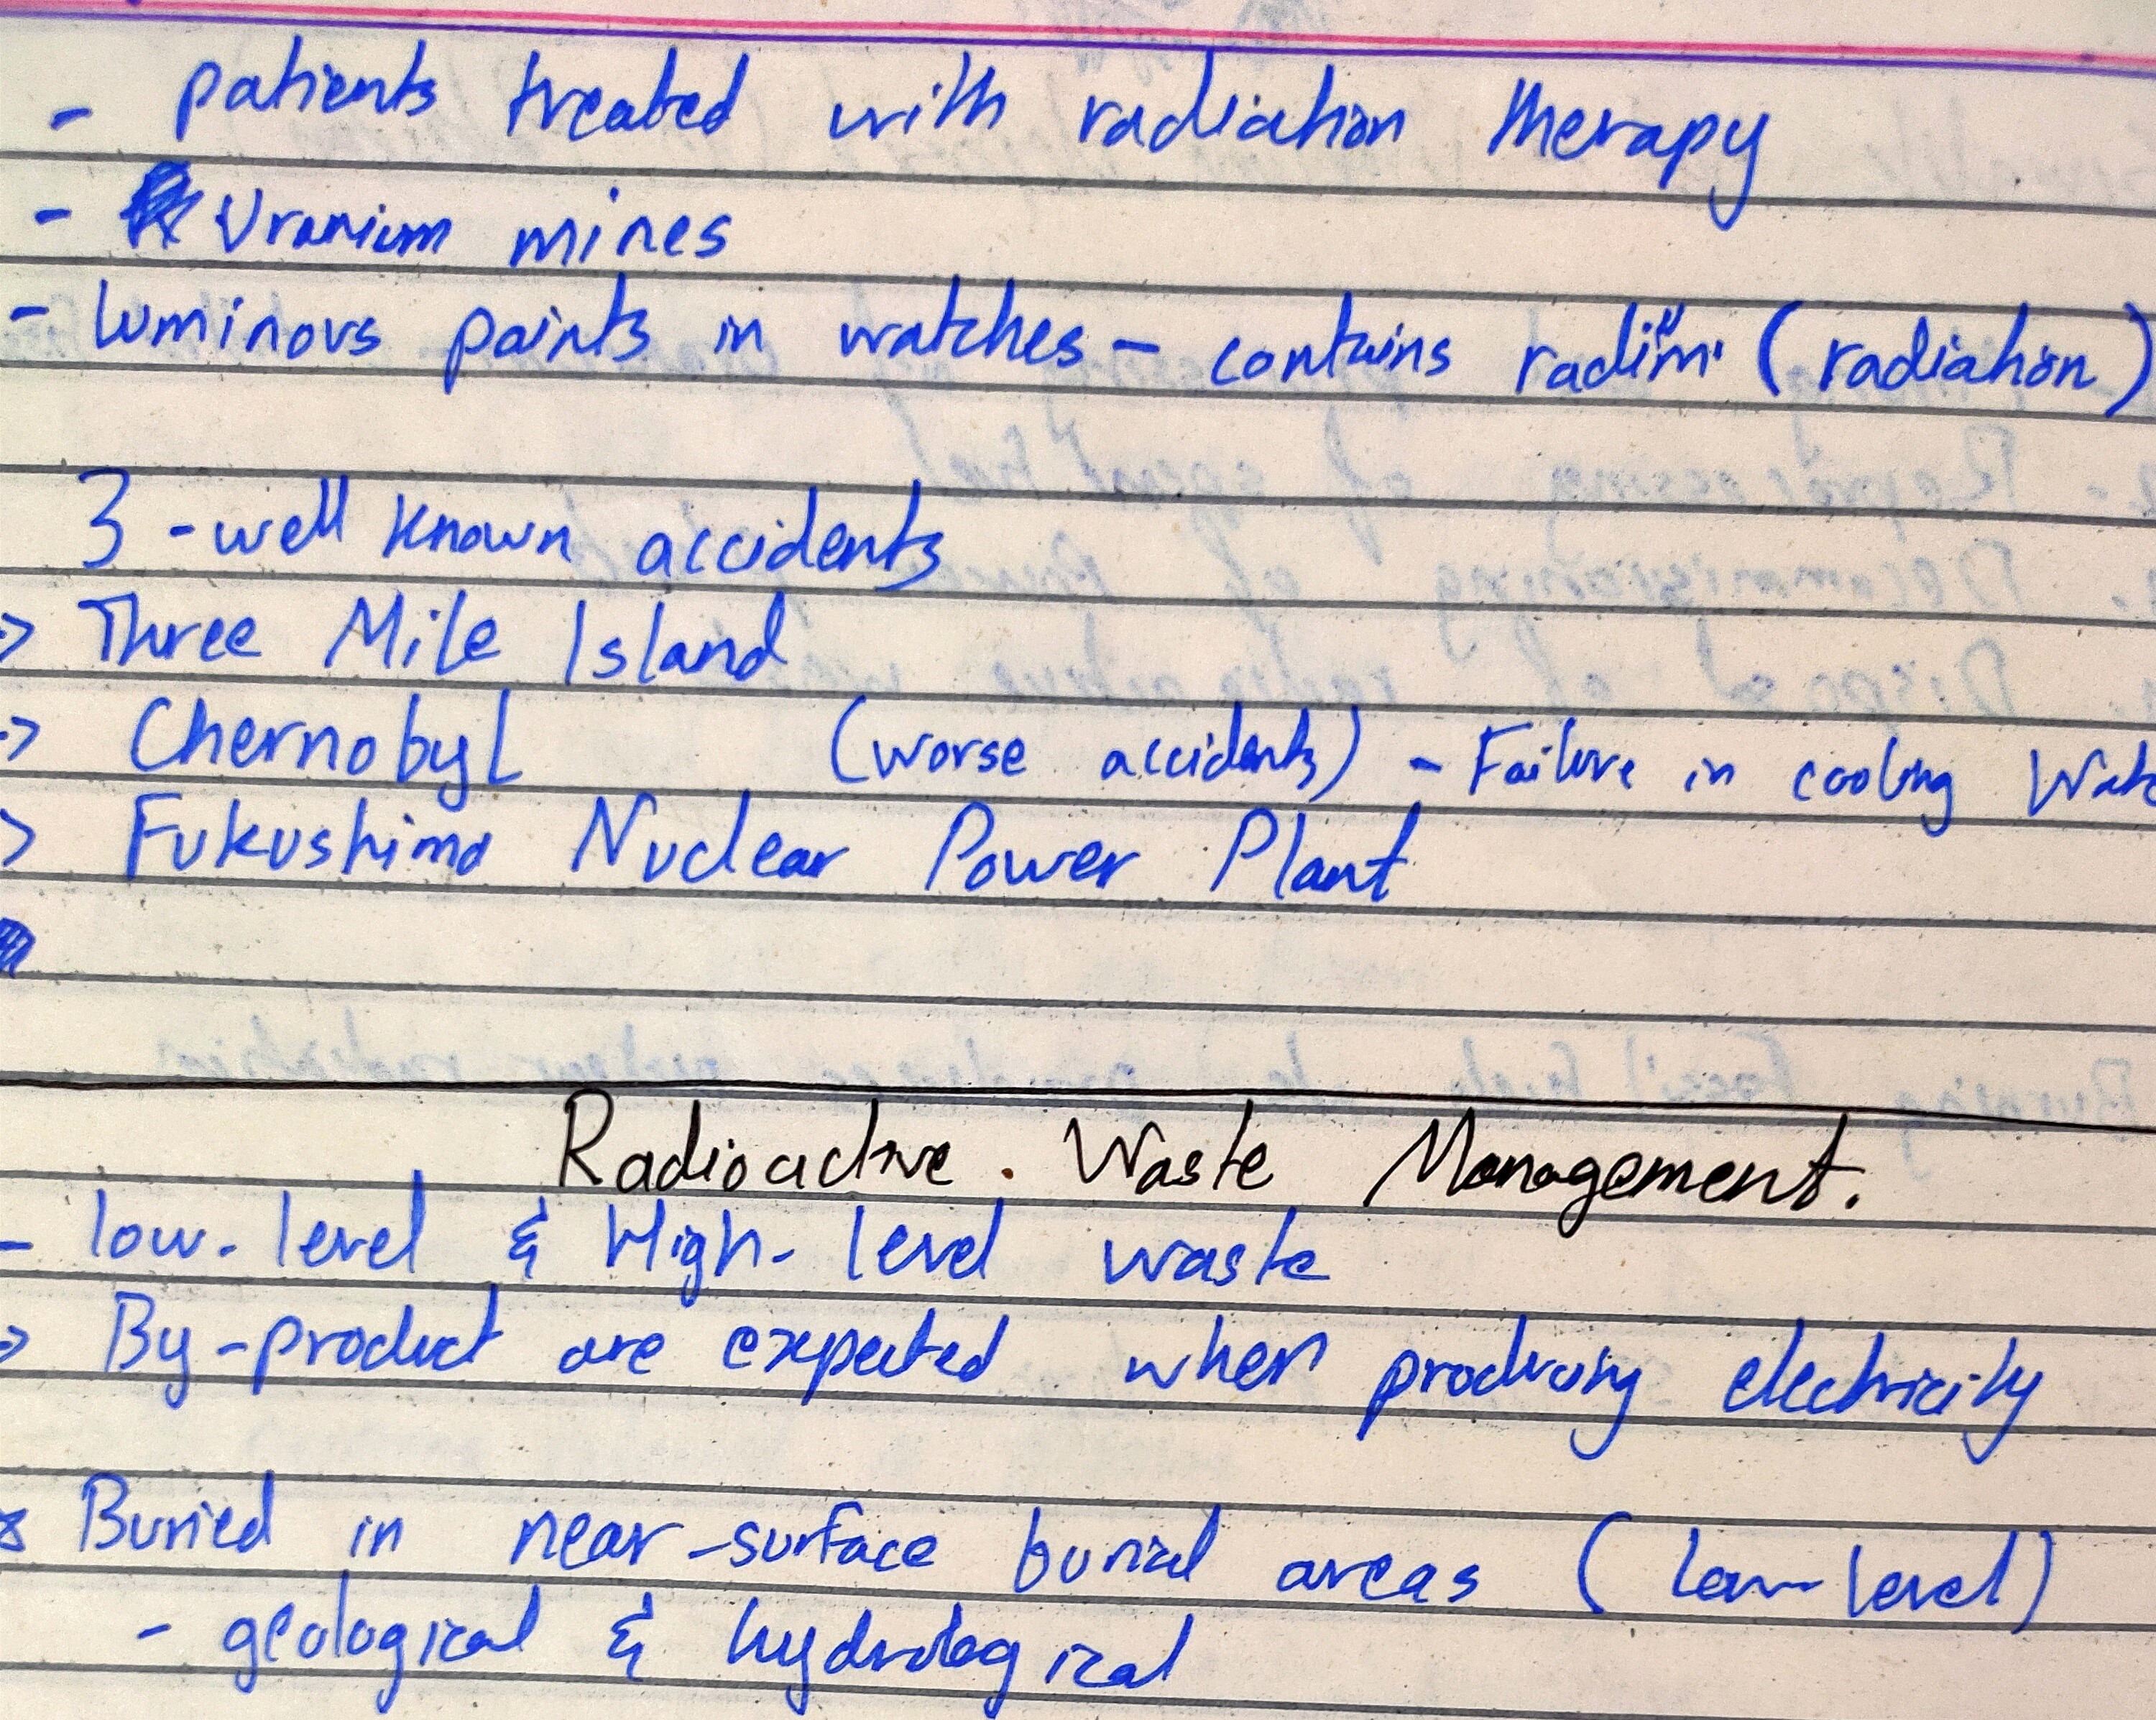 - patients treated with radiation therapy
- Uranium mines
- luminous paints in watches - contains radium (radiation)
3 - well known accidents
-> Three Mile Island
-> Chernobyl (worse accidents) - Failure in cooling
> Fukushima Nuclear Power Plant
Radioactive Waste Management.
- low-level & High-level waste
-> By-product are expected when producing electricity
* Buried in near-surface burial areas (low-level)
- geological & hydrological